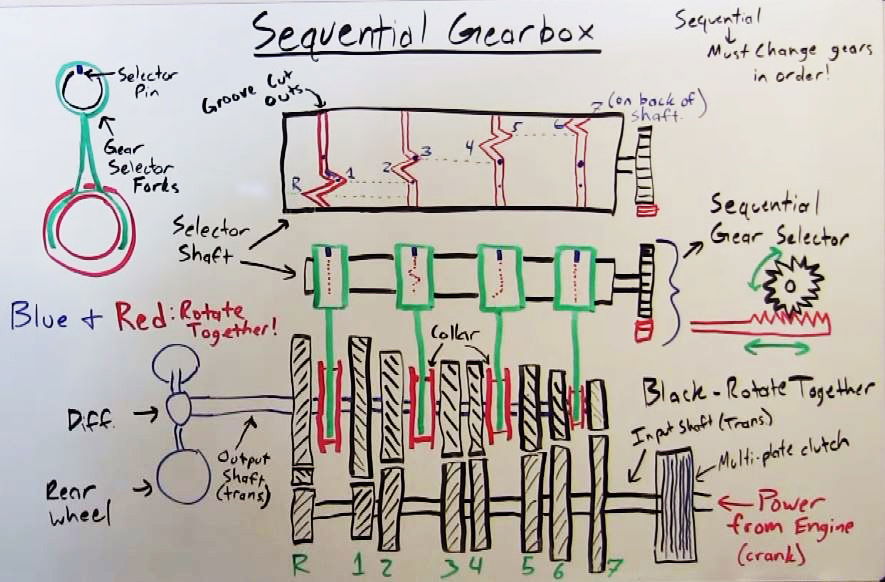 Sequential Gearbox
Sequential
Must Change gears
in order!
Selector
Pin
Gear
Selector
Forks
Groove Cut
Outs
R
1
2
3
4
5
6
7 (on back of
shaft.)
Selector
Shaft
Sequential
Gear Selector
Blue + Red: Rotate
Together!
Collar
Black - Rotate Together
Input Shaft (Trans.)
Multi-plate clutch
Diff.
Output
Shaft
(trans)
Rear
wheel
Power
from Engine
(crank)
R 1 2 3 4 5 6 7